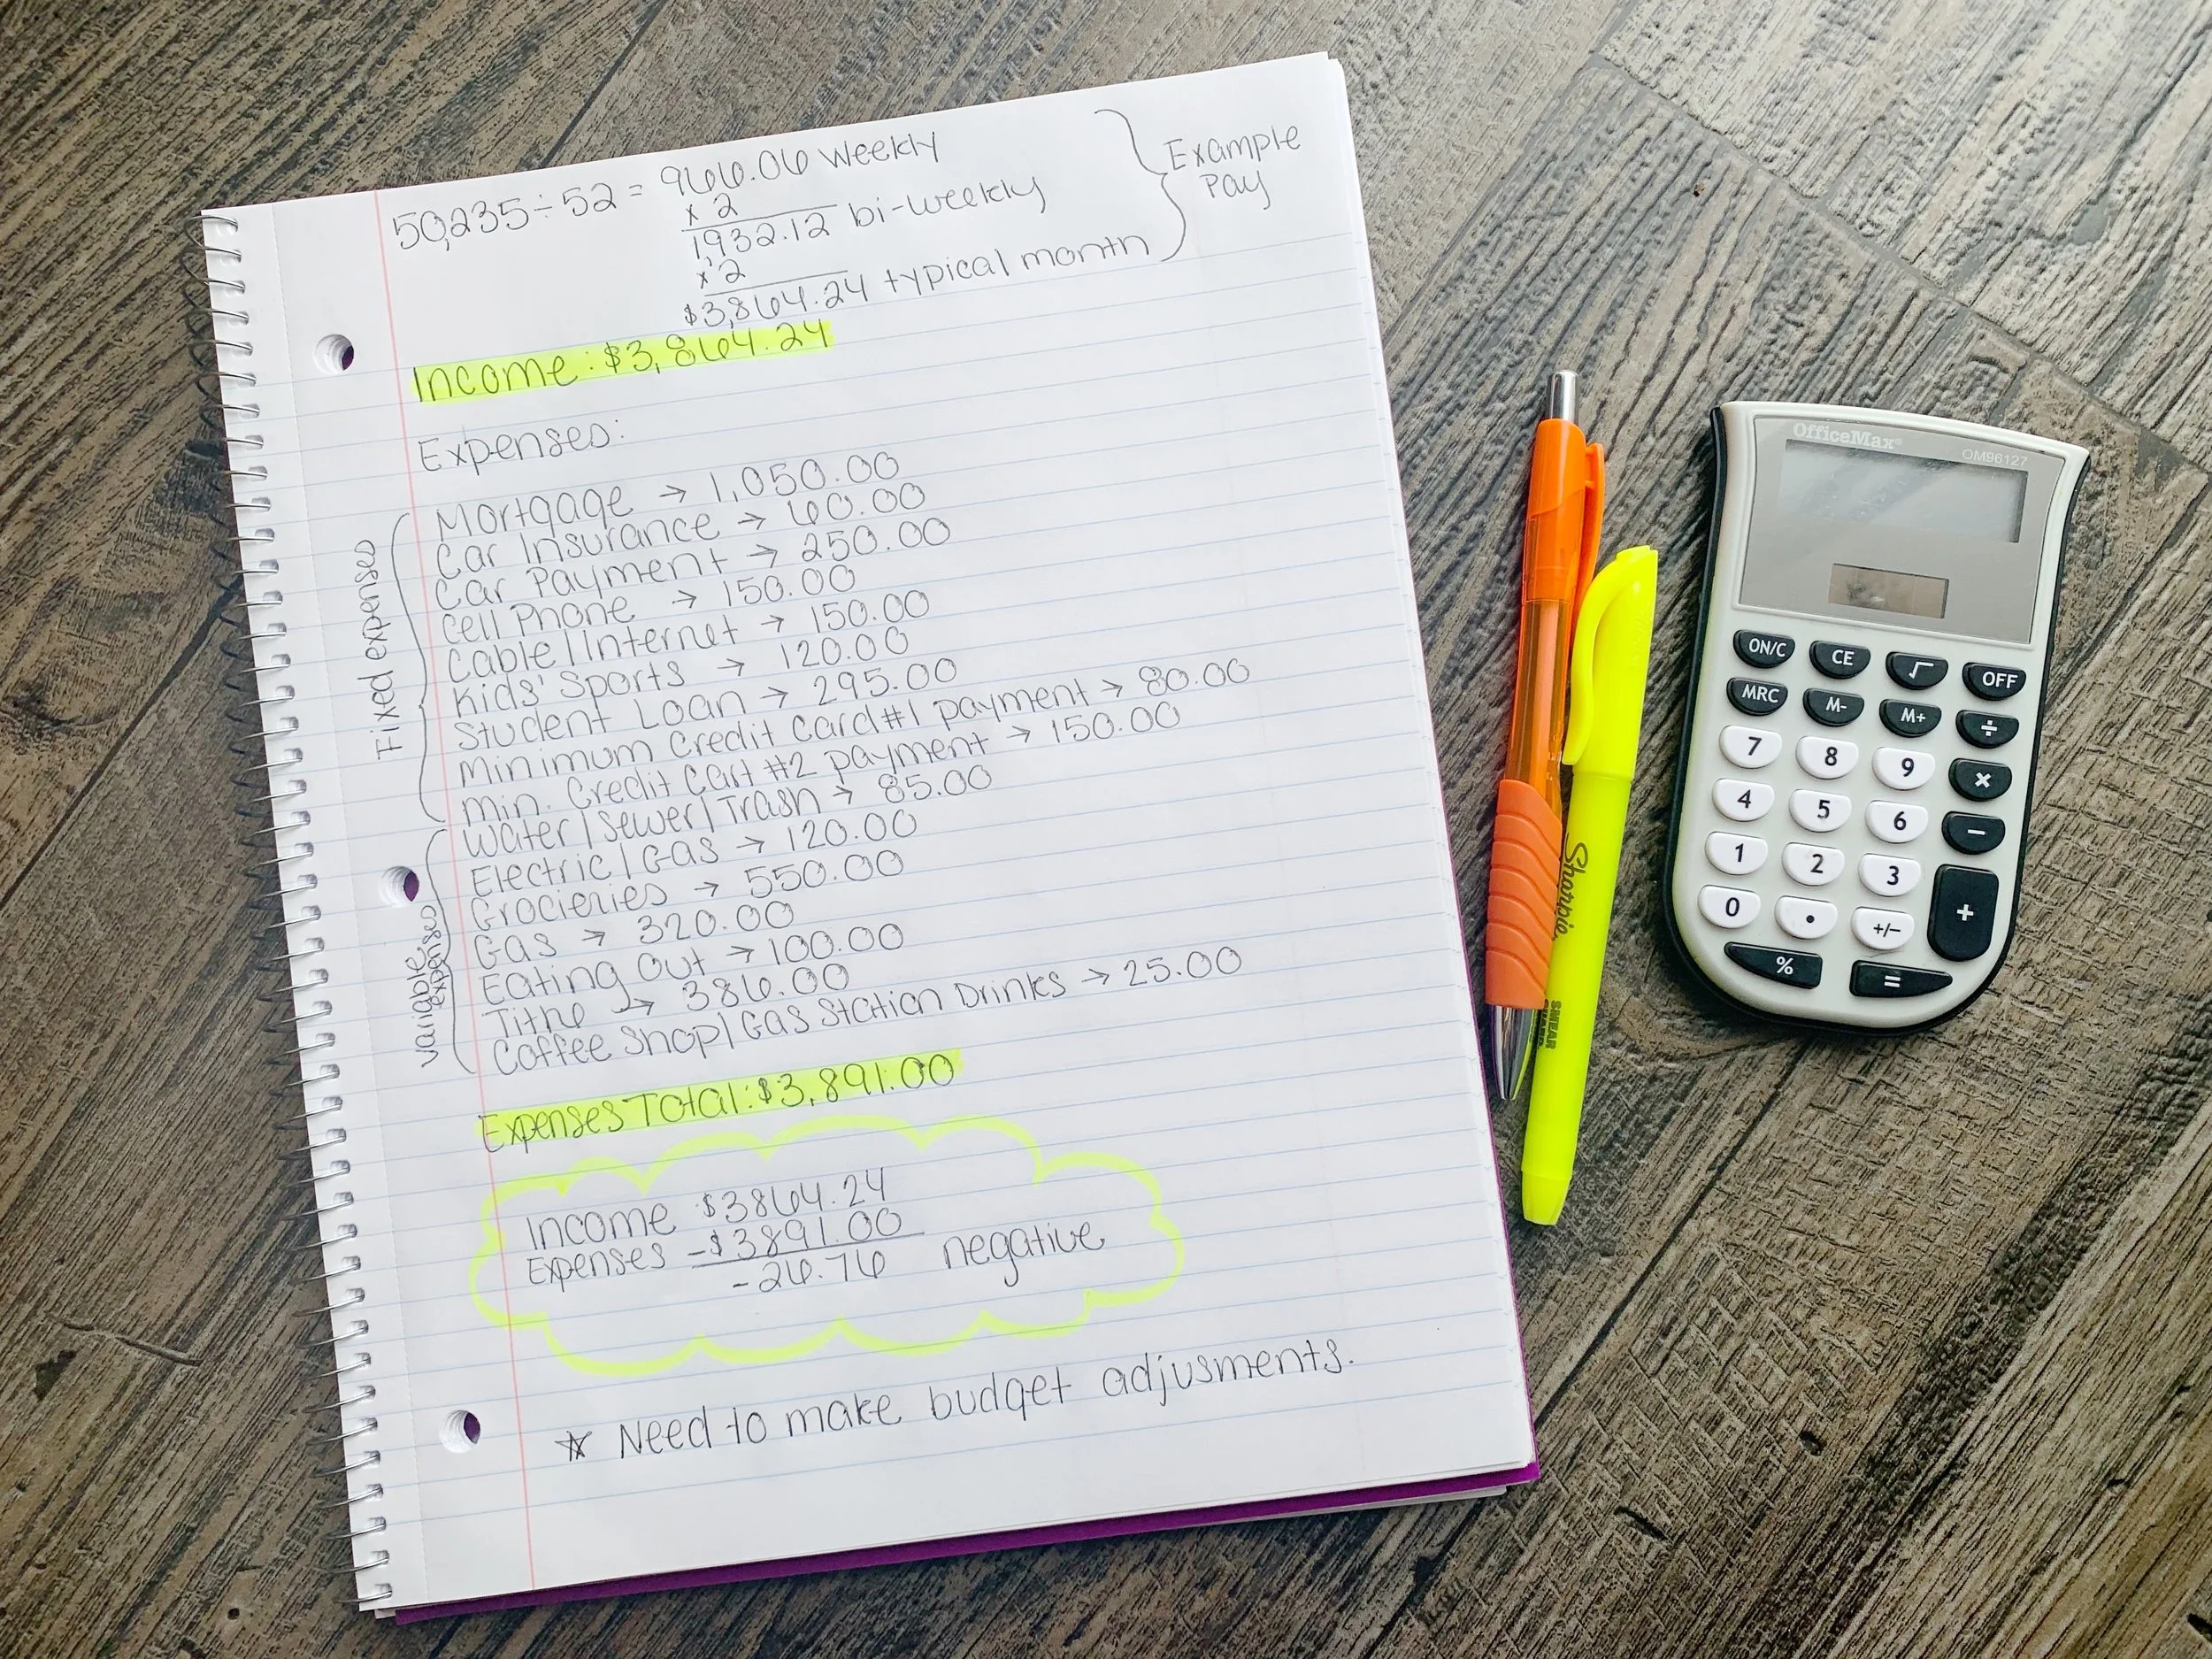 50,235 ÷ 52 = 966.06 Weekly
x 2
1932.12 bi-weekly
x 2
$3,864.24 typical month
Example
Pay
Income: $3,864.24
Expenses:
Fixed expenses
Mortgage → 1,050.00
Car Insurance → 60.00
Car Payment → 250.00
Cell Phone → 150.00
Cable/Internet → 150.00
Kids' Sports → 120.00
Student Loan → 295.00
Minimum Credit Card #1 payment → 80.00
Min. Credit Cart #2 payment → 150.00
Variable expenses
Water/Sewer/Trash → 85.00
Electric/Gas → 120.00
Grocieries → 550.00
Gas → 320.00
Eating Out → 100.00
Tithe → 386.00
Coffee Shop/Gas Station Drinks → 25.00
Expenses Total: $3,891.00
Income $3864.24
Expenses -$3891.00
-26.76 negative
* Need to make budget adjusments.
Sharpie
SMEAR
GUARD
OfficeMax®
OM96127
ON/C CE √ OFF
MRC M- M+ ÷
7 8 9 ×
4 5 6 −
1 2 3
0 • +/− +
% =